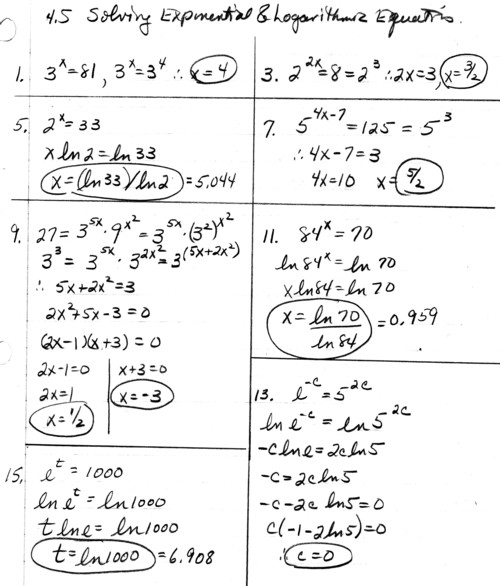 4.5 Solving Exponential & Logarithmic Equations.
1. 3^x = 81, 3^x = 3^4 ∴ x = 4
3. 2^{2x} = 8 = 2^3 ∴ 2x = 3, x = 3/2
5. 2^x = 33
x ln 2 = ln 33
x = (ln 33)/ln 2 = 5.044
7. 5^{4x-7} = 125 = 5^3
∴ 4x - 7 = 3
4x = 10 x = 5/2
9. 27 = 3^{5x} · 9^{x^2} = 3^{5x} · (3^2)^{x^2}
3^3 = 3^{5x} · 3^{2x^2} = 3^{(5x+2x^2)}
∴ 5x + 2x^2 = 3
2x^2 + 5x - 3 = 0
(2x - 1)(x + 3) = 0
2x - 1 = 0 | x + 3 = 0
2x = 1 | x = -3
x = 1/2
11. 84^x = 70
ln 84^x = ln 70
x ln 84 = ln 70
x = ln 70 / ln 84 = 0.959
13. e^{-c} = 5^{2c}
ln e^{-c} = ln 5^{2c}
-c ln e = 2c ln 5
-c = 2c ln 5
-c - 2c ln 5 = 0
c(-1 - 2 ln 5) = 0
∴ c = 0
15. e^t = 1000
ln e^t = ln 1000
t ln e = ln 1000
t = ln 1000 = 6.908